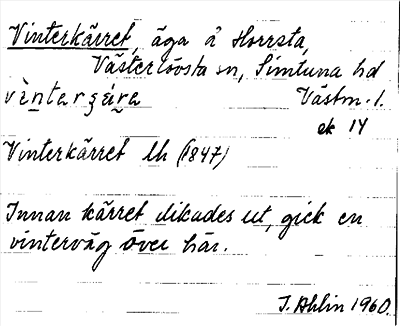 Vinterkärret, äga å Horrsta,
Västerlövsta sn, Simtuna hd
Västm. l.
ek 14
Vinterkärret lh (1847)
Innan kärret dikades ut, gick en
vinterväg över här.
J. Ahlin 1960.